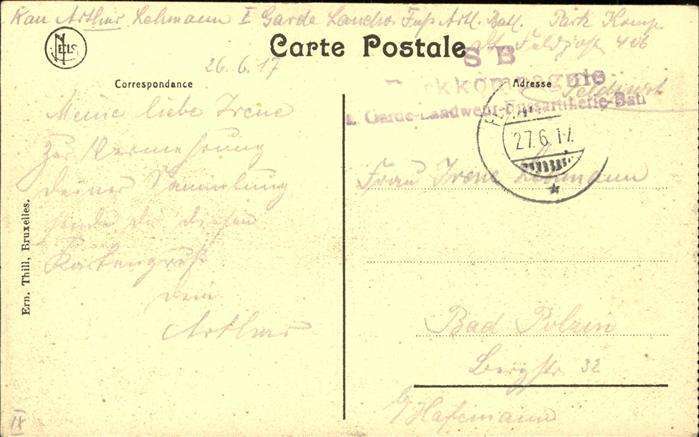 Kan Arthur Lehmann I Garde Landw. Fuß Artl. Batl. Park Komp
Feldpost 406
NELS
Carte Postale
S B
Parkkompagnie
Garde-Landwehr-Fussartillerie-Batl
26.6.17
Correspondance
Adresse
Feldpost
27.6.17
Meine liebe Irene
Zur Vermehrung
deiner Sammlung
sende dir diesen
Kartengruß
dein
Arthur
Frau Irene Lehmann
Bad Polzin
Bergstr. 32
b/Hafemann
Ern. Thill, Bruxelles.